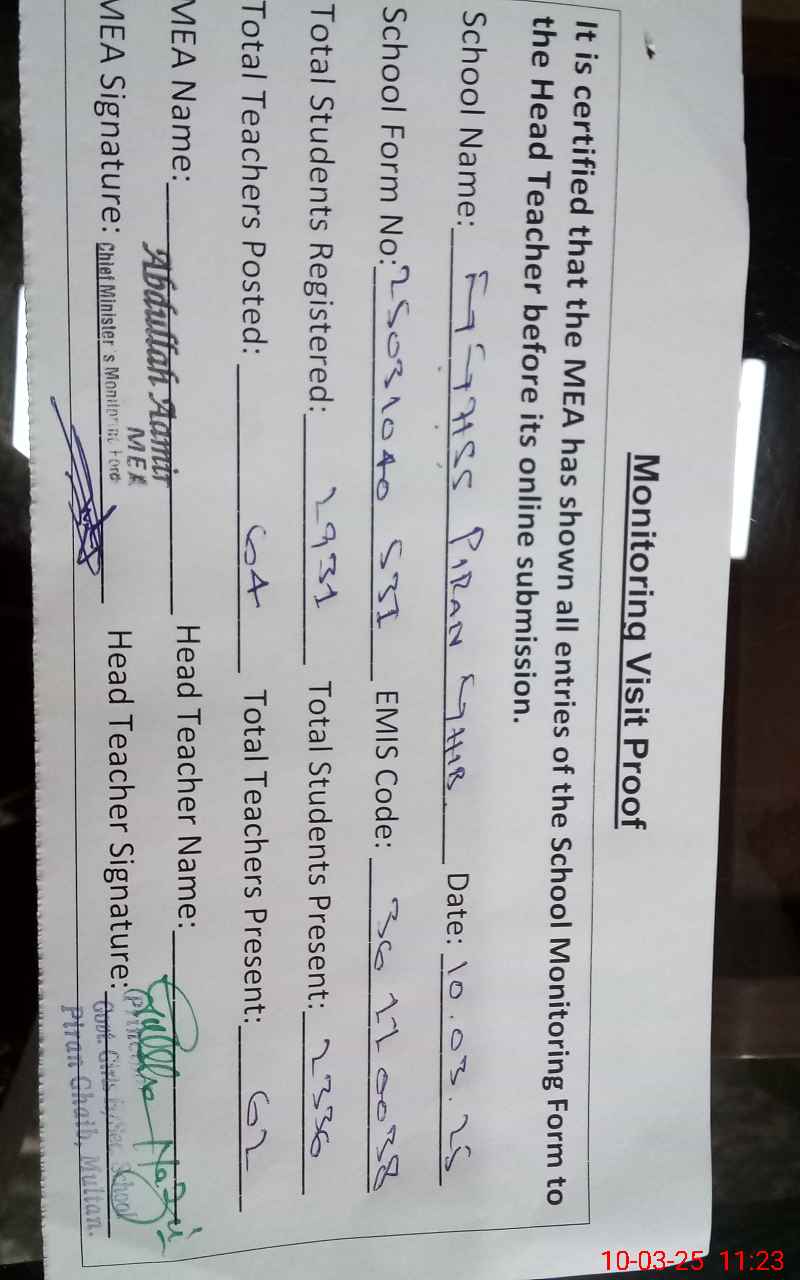 Monitoring Visit Proof
It is certified that the MEA has shown all entries of the School Monitoring Form to
the Head Teacher before its online submission.
School Name: GGHSS PIRAN GHIB Date: 10.03.25
School Form No: 25031040 531 EMIS Code: 36110038
Total Students Registered: 2931 Total Students Present: 2336
Total Teachers Posted: 64 Total Teachers Present: 62
MEA Name: Abdullah Aamir Head Teacher Name:
MEA
MEA Signature: Chief Minister's Monitoring Force Head Teacher Signature:
Govt. Girls School
Piran Ghaib, Multan.
10-03-25 11:23